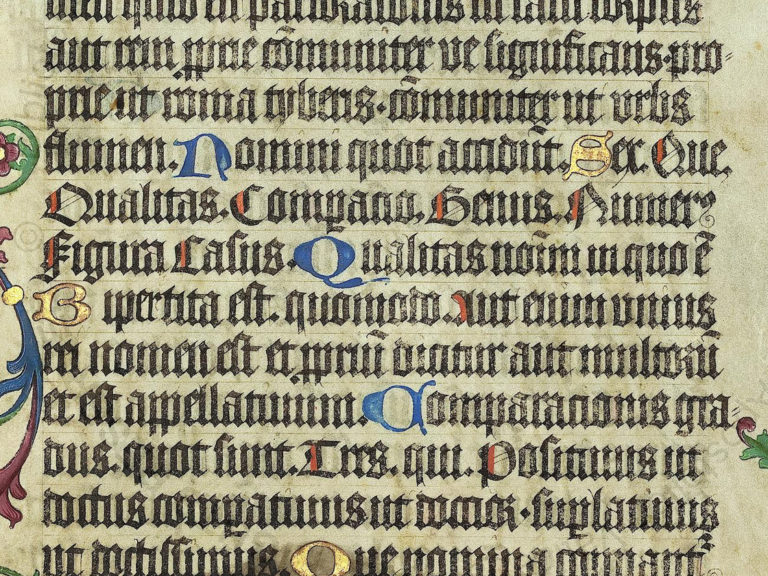 men quid ē pars orationis cum casu corpus
aut rem ꝓprie cōmuniter ve significans·pro⸗
prie ut roma tyberis·cōmuniter ut urbs
flumen. Nomini quot accidūt. Sex. Que.
Qualitas. Comparatio. Genus. Numerꝰ
Figura Casus. Qualitas noīm in quo ē
Bipertita est. quomodo. Aut enim unius
rei nomen est et ꝓpriū dicitur aut multorū
et est appellatiuum. Comparationis gra⸗
dus. quot sunt. Tres. qui. Positiuus ut
doctus comparatiuus ut doctior·suplatiuus
ut doctissimus. Que nomina comparant᷑